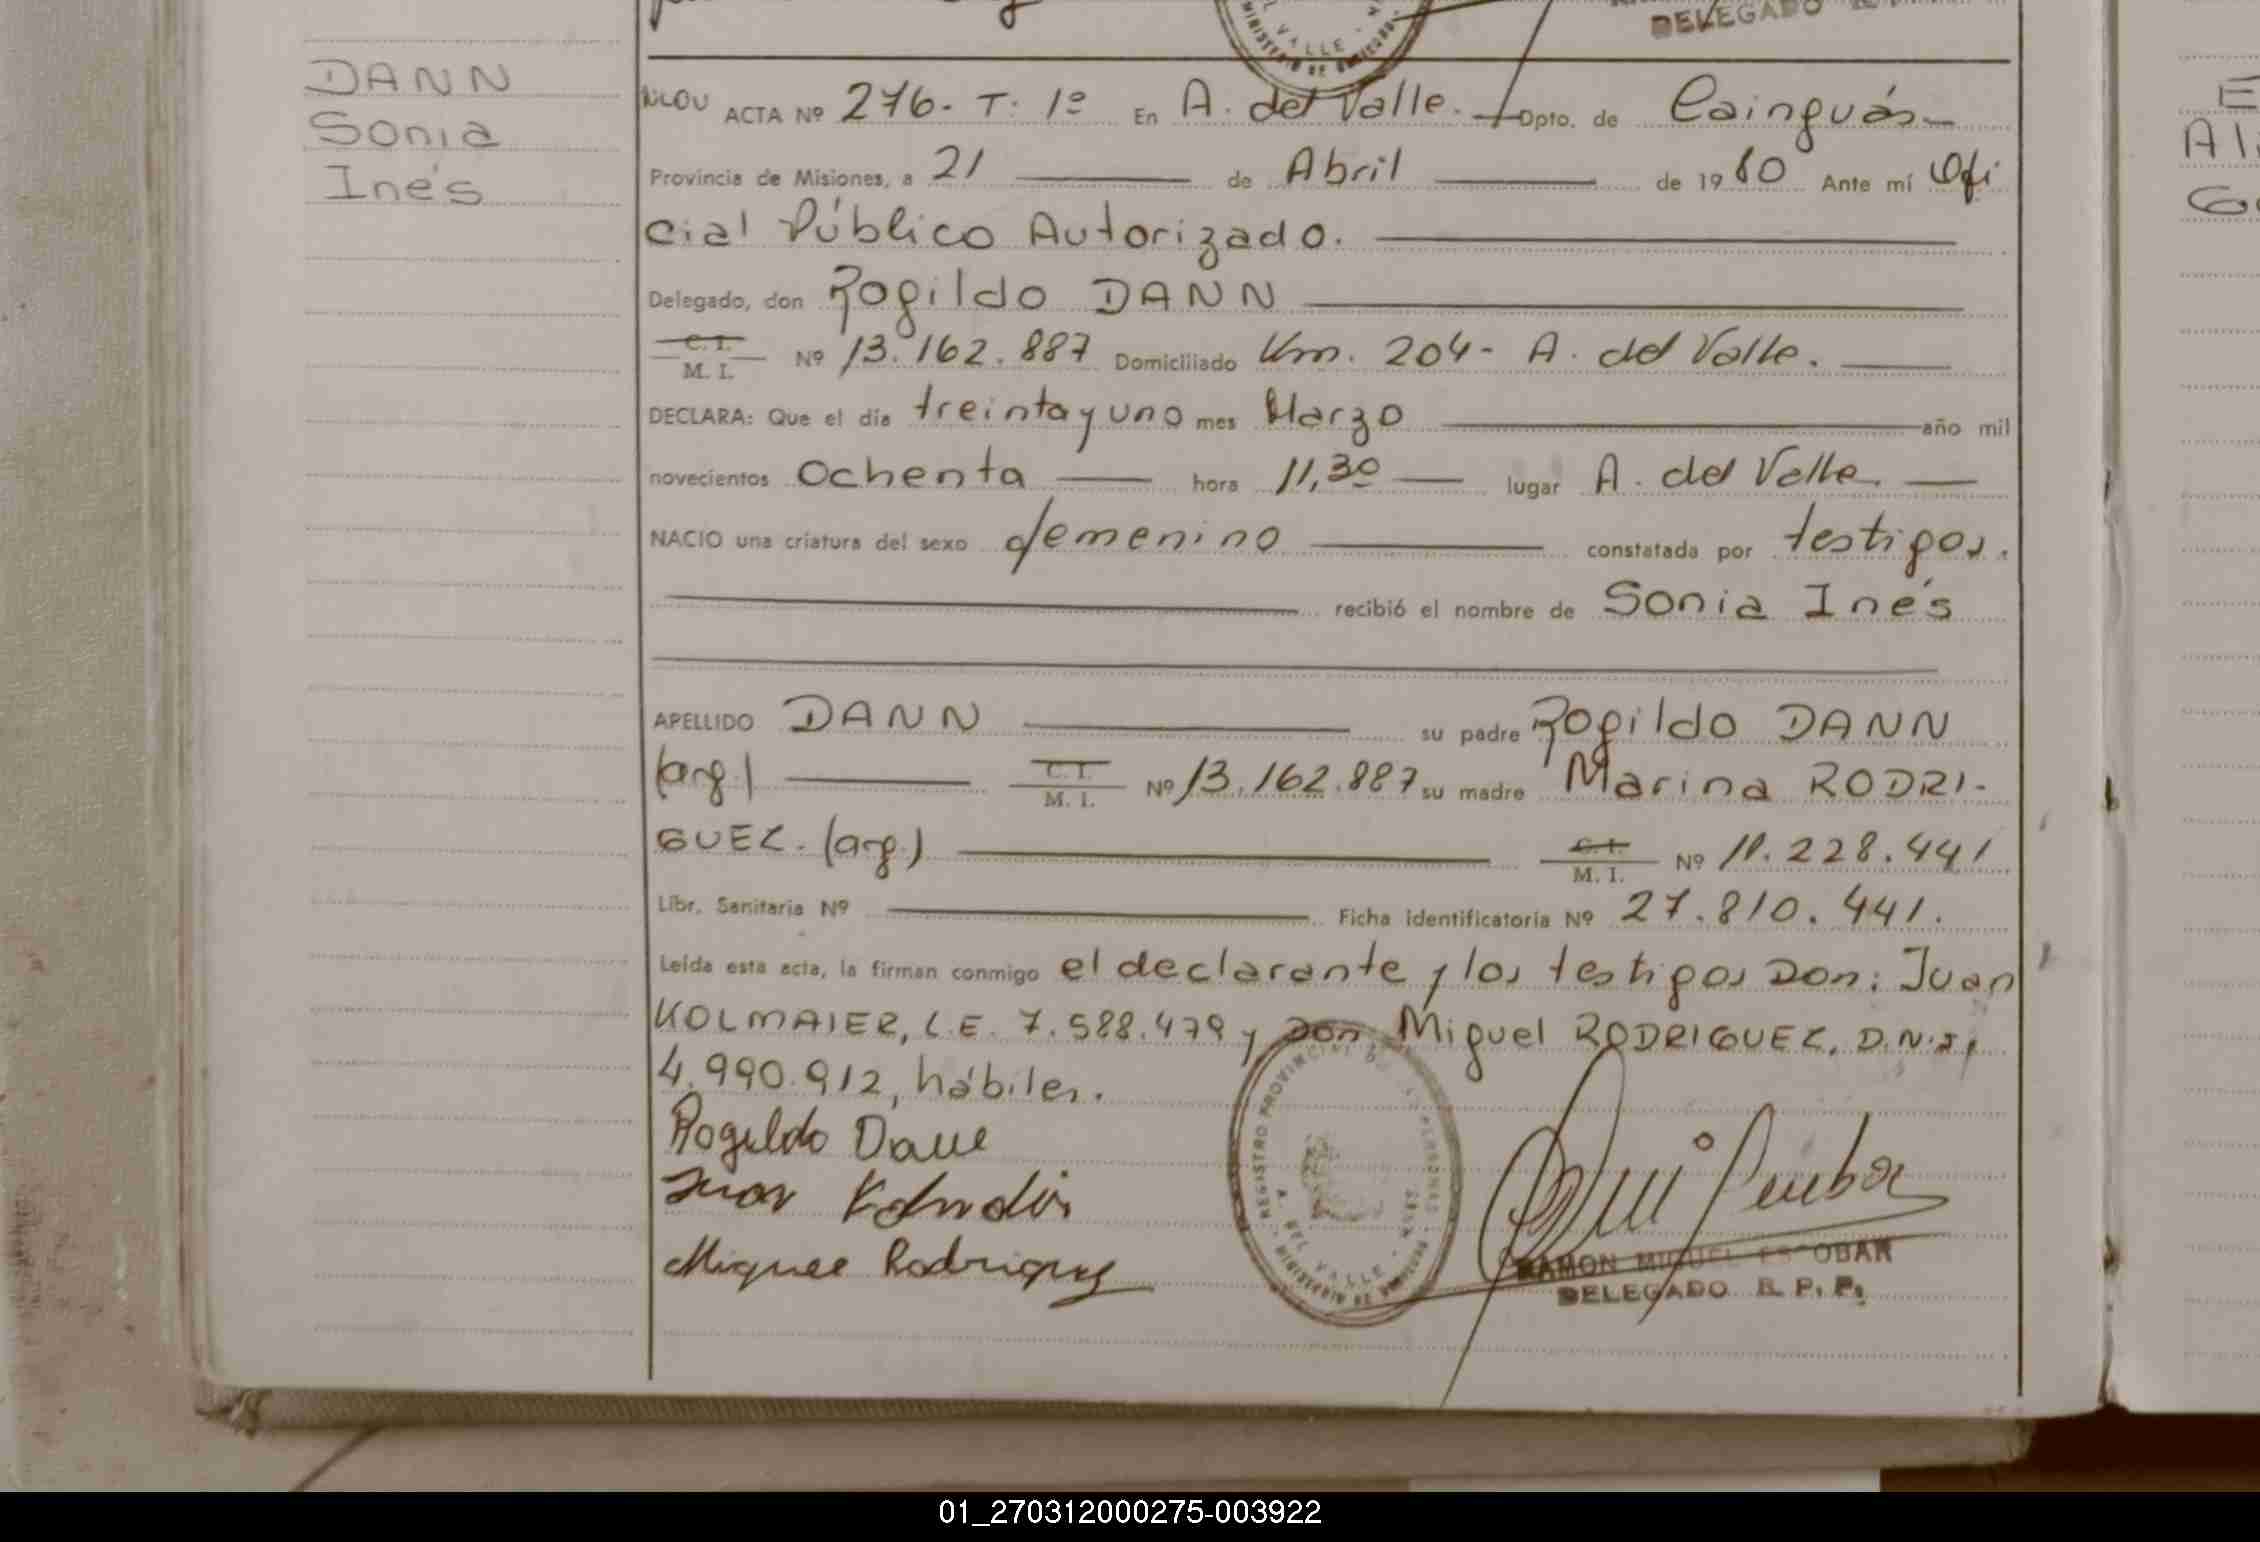 DELEGADO
DANN
Sonia
Inés
ACTA Nº 276. T. 1º En A. del Valle. Dpto. de Cainguás
Provincia de Misiones, a 21 de Abril de 1980 Ante mí Ofi
cial Público Autorizado.
Delegado, don Rogildo DANN
C. I.
M. I. Nº 13.162.887 Domiciliado Km. 204- A. del Valle.
DECLARA: Que el día treinta y uno mes Marzo año mil
novecientos Ochenta hora 11,30 lugar A. del Valle.
NACIO una criatura del sexo femenino constatada por testigos.
recibió el nombre de Sonia Inés
APELLIDO DANN su padre Rogildo DANN
(arg.) C. I.
M. I. Nº 13.162.887 su madre Marina RODRI-
GUEZ. (arg.) C. I.
M. I. Nº 11.228.441
Libr. Sanitaria Nº Ficha identificatoria Nº 27.810.441.
Leída esta acta, la firman conmigo el declarante y los testigos Don: Juan
KOLMAIER, L.E. 7.588.479 y Don Miguel RODRIGUEZ, D.N.I,
4.990.912, hábiles.
Rogildo Dann
Juan
Miguel Rodriguez
REGISTRO PROVINCIAL DE LAS PERSONAS
A. DEL VALLE
MINISTERIO DE GOBIERNO
RAMON MIGUEL ESCOBAR
DELEGADO R. P. P.
01_270312000275-003922